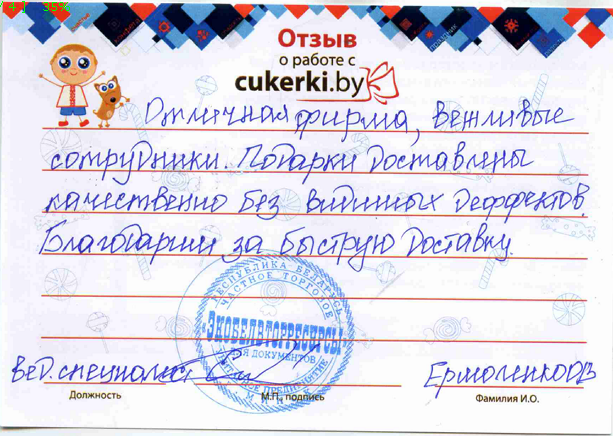 Отзыв
о работе с
cukerki.by
Отличная фирма, вежливые
сотрудники. Подарки доставлены
качественно без видимых деффектов.
Благодарим за быструю доставку.
РЕСПУБЛИКА БЕЛАРУСЬ
ЧАСТНОЕ ТОРГОВОЕ
"ЭКОБЕЛВТОРРЕСУРСЫ"
ДЛЯ ДОКУМЕНТОВ
Вед. специалист
Ермоленко О В
Должность
М.П., подпись
Фамилия И.О.